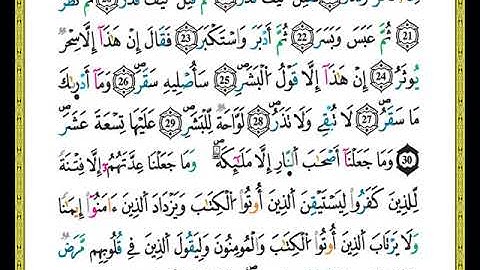 21 ثُمَّ عَبَسَ وَبَسَرَ 22 ثُمَّ أَدْبَرَ وَٱسْتَكْبَرَ 23 فَقَالَ إِنْ هَٰذَآ إِلَّا سِحْرٌ
يُؤْثَرُ 24 إِنْ هَٰذَآ إِلَّا قَوْلُ ٱلْبَشَرِ 25 سَأُصْلِيهِ سَقَرَ 26 وَمَآ أَدْرَىٰكَ
مَا سَقَرُ 27 لَا تُبْقِى وَلَا تَذَرُ 28 لَوَّاحَةٌ لِّلْبَشَرِ 29 عَلَيْهَا تِسْعَةَ عَشَرَ
30 وَمَا جَعَلْنَآ أَصْحَٰبَ ٱلنَّارِ إِلَّا مَلَٰٓئِكَةً وَمَا جَعَلْنَا عِدَّتَهُمْ إِلَّا فِتْنَةً
لِّلَّذِينَ كَفَرُوا۟ لِيَسْتَيْقِنَ ٱلَّذِينَ أُوتُوا۟ ٱلْكِتَٰبَ وَيَزْدَادَ ٱلَّذِينَ ءَامَنُوٓا۟ إِيمَٰنًا
وَلَا يَرْتَابَ ٱلَّذِينَ أُوتُوا۟ ٱلْكِتَٰبَ وَٱلْمُؤْمِنُونَ وَلِيَقُولَ ٱلَّذِينَ فِى قُلُوبِهِم مَّرَضٌ